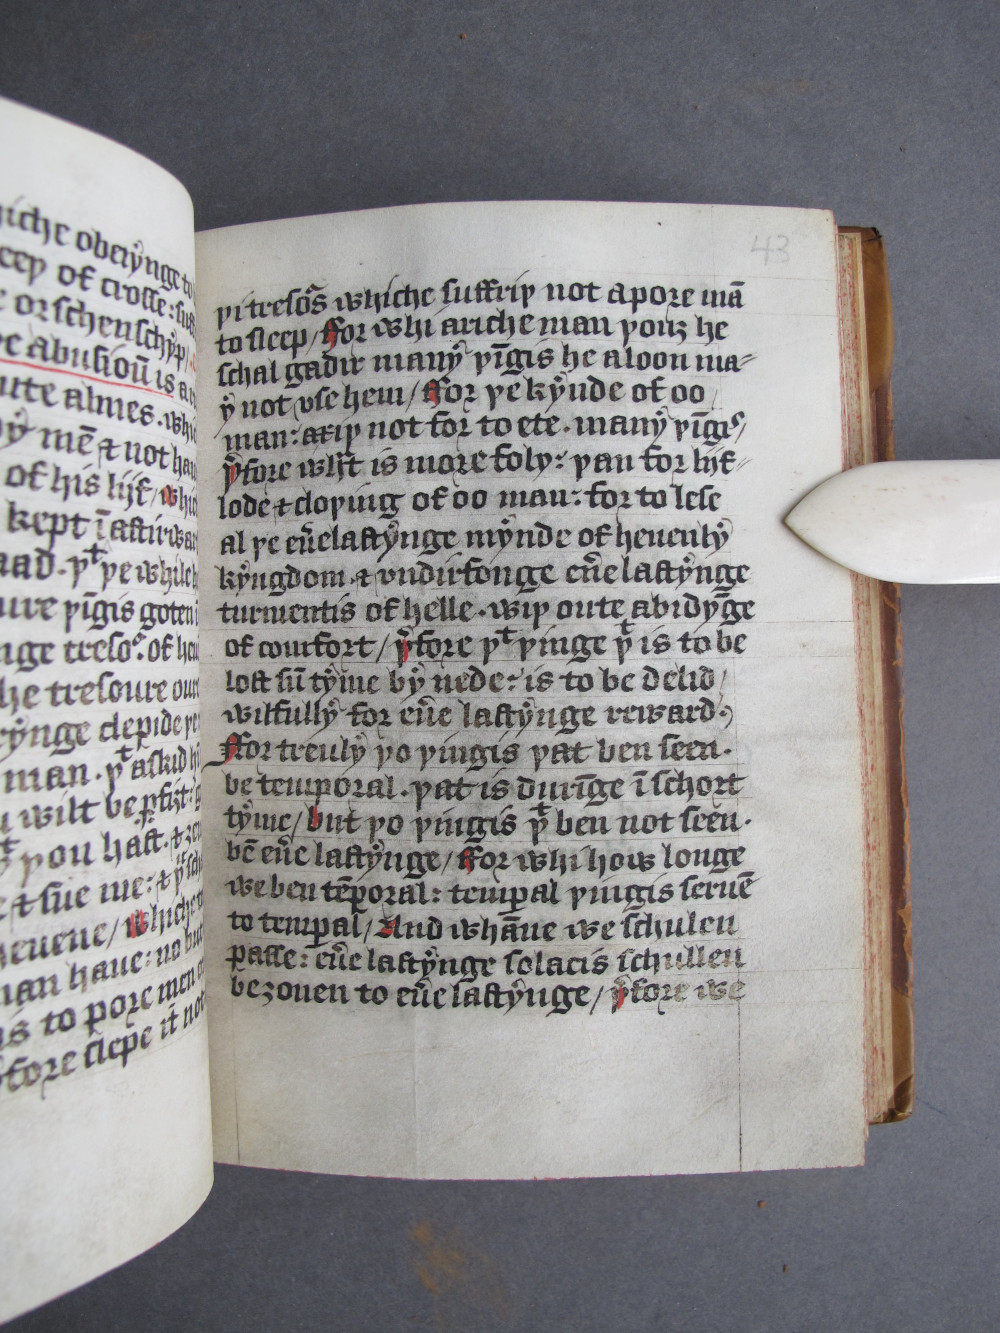 iche obeẏnge to
eep of crosse : suff
e or schenschẏp /
e abusioū is a
ute almes . whi
bẏ mē & not hau
of his lijf / whic
kept ī aftirwar
aad . þᵗ þe while
ure þīgis goten
nge tresoꝰ . of he
he tresoure our
rẏnge clepide
man . þᵗ askid h
u wilt be ꝑfizt :
þou hast . &
& sue me : &
heuene / whiche
man haue : no but
is to pore men
fore slepe it not
þi tresōs whiche suffriþ not a pore mā
to sleep / For whi a riche man þouz he
schal gadir manẏ þīgis he aloon ma-
ẏ not vse hem / For þe kẏnde of oo
man : axiþ not for to ete . manẏ þīgis /
þ̉fore wħt is more foly : þan for lijf-
lode & cloþing of oo man : for to lese
al þe eūelastẏnge mẏnde of heuenlẏ
kẏngdom . & vndirfonge eūe lastẏnge
turmentis of helle . wiþ oute abidẏn̄ge
of comfort / þ̉fore þᵗ þinge þᵗ is to be
lost sū tẏme bẏ nede : is to be delid /
wilfullẏ for eūe lastẏnge reward .
For treulẏ þo þingis þat ben seen .
be temporal . þat is durīge ī schort
tẏme / but þo þingis þᵗ ben not seen .
bē eūe lastẏnge / For whi how longe
we ben tēporal : temꝑal þingis seruē
to temꝑal / And whāne we schulen
passe : eūe lastẏnge solacis schullen
bezouen to eūe lastẏnge / þ̉fore we
43